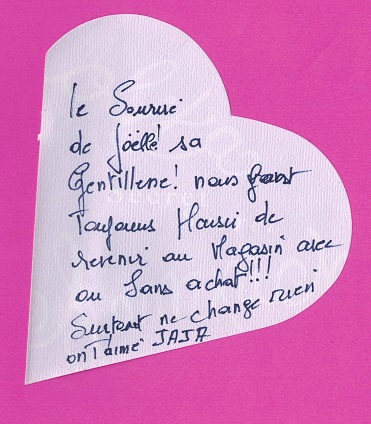 le Sourire
de Joëlle sa
Gentillesse! nous font
Toujours Plaisir de
revenir au Magasin avec
ou Sans achat!!!
Surtout ne change rien
on T'aime JAJA